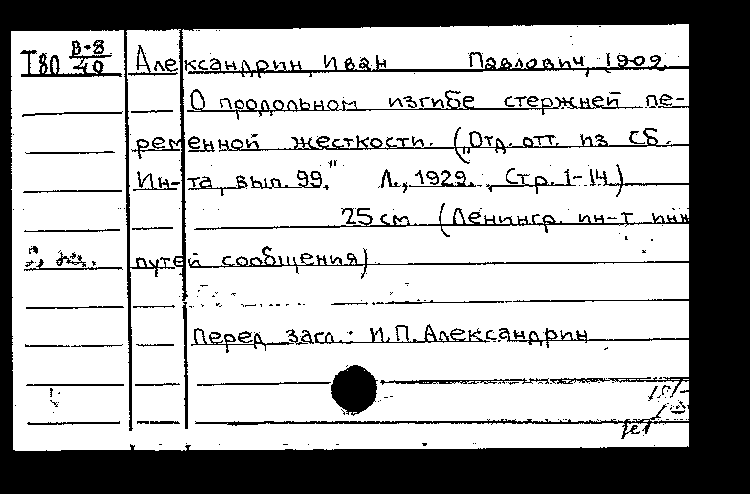 Т80 В-8/40 Александрин, Иван Павлович, 1902
О продольном изгибе стержней пе-
ременной жесткости. („Отд. отт. из Сб.
Ин-та, вып. 99." Л., 1929. Стр. 1-14.)
25 см. (Ленингр. ин-т инж
путей сообщения)
Перед загл.: И.П. Александрин